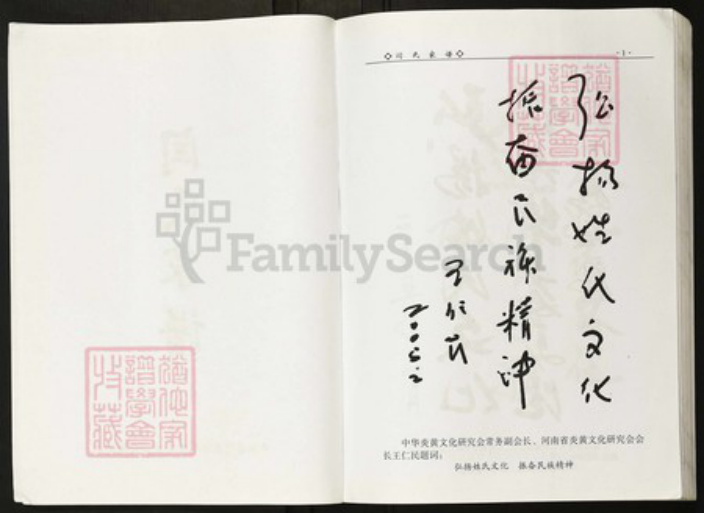 闫氏家谱
·1·
弘扬姓氏文化
振奋民族精神
王仁民
2005.2
中华炎黄文化研究会常务副会长、河南省炎黄文化研究会会
长王仁民题词:
弘扬姓氏文化 振奋民族精神
犹他家
谱学会
收藏
犹他家
譜學會
收藏
FamilySearch